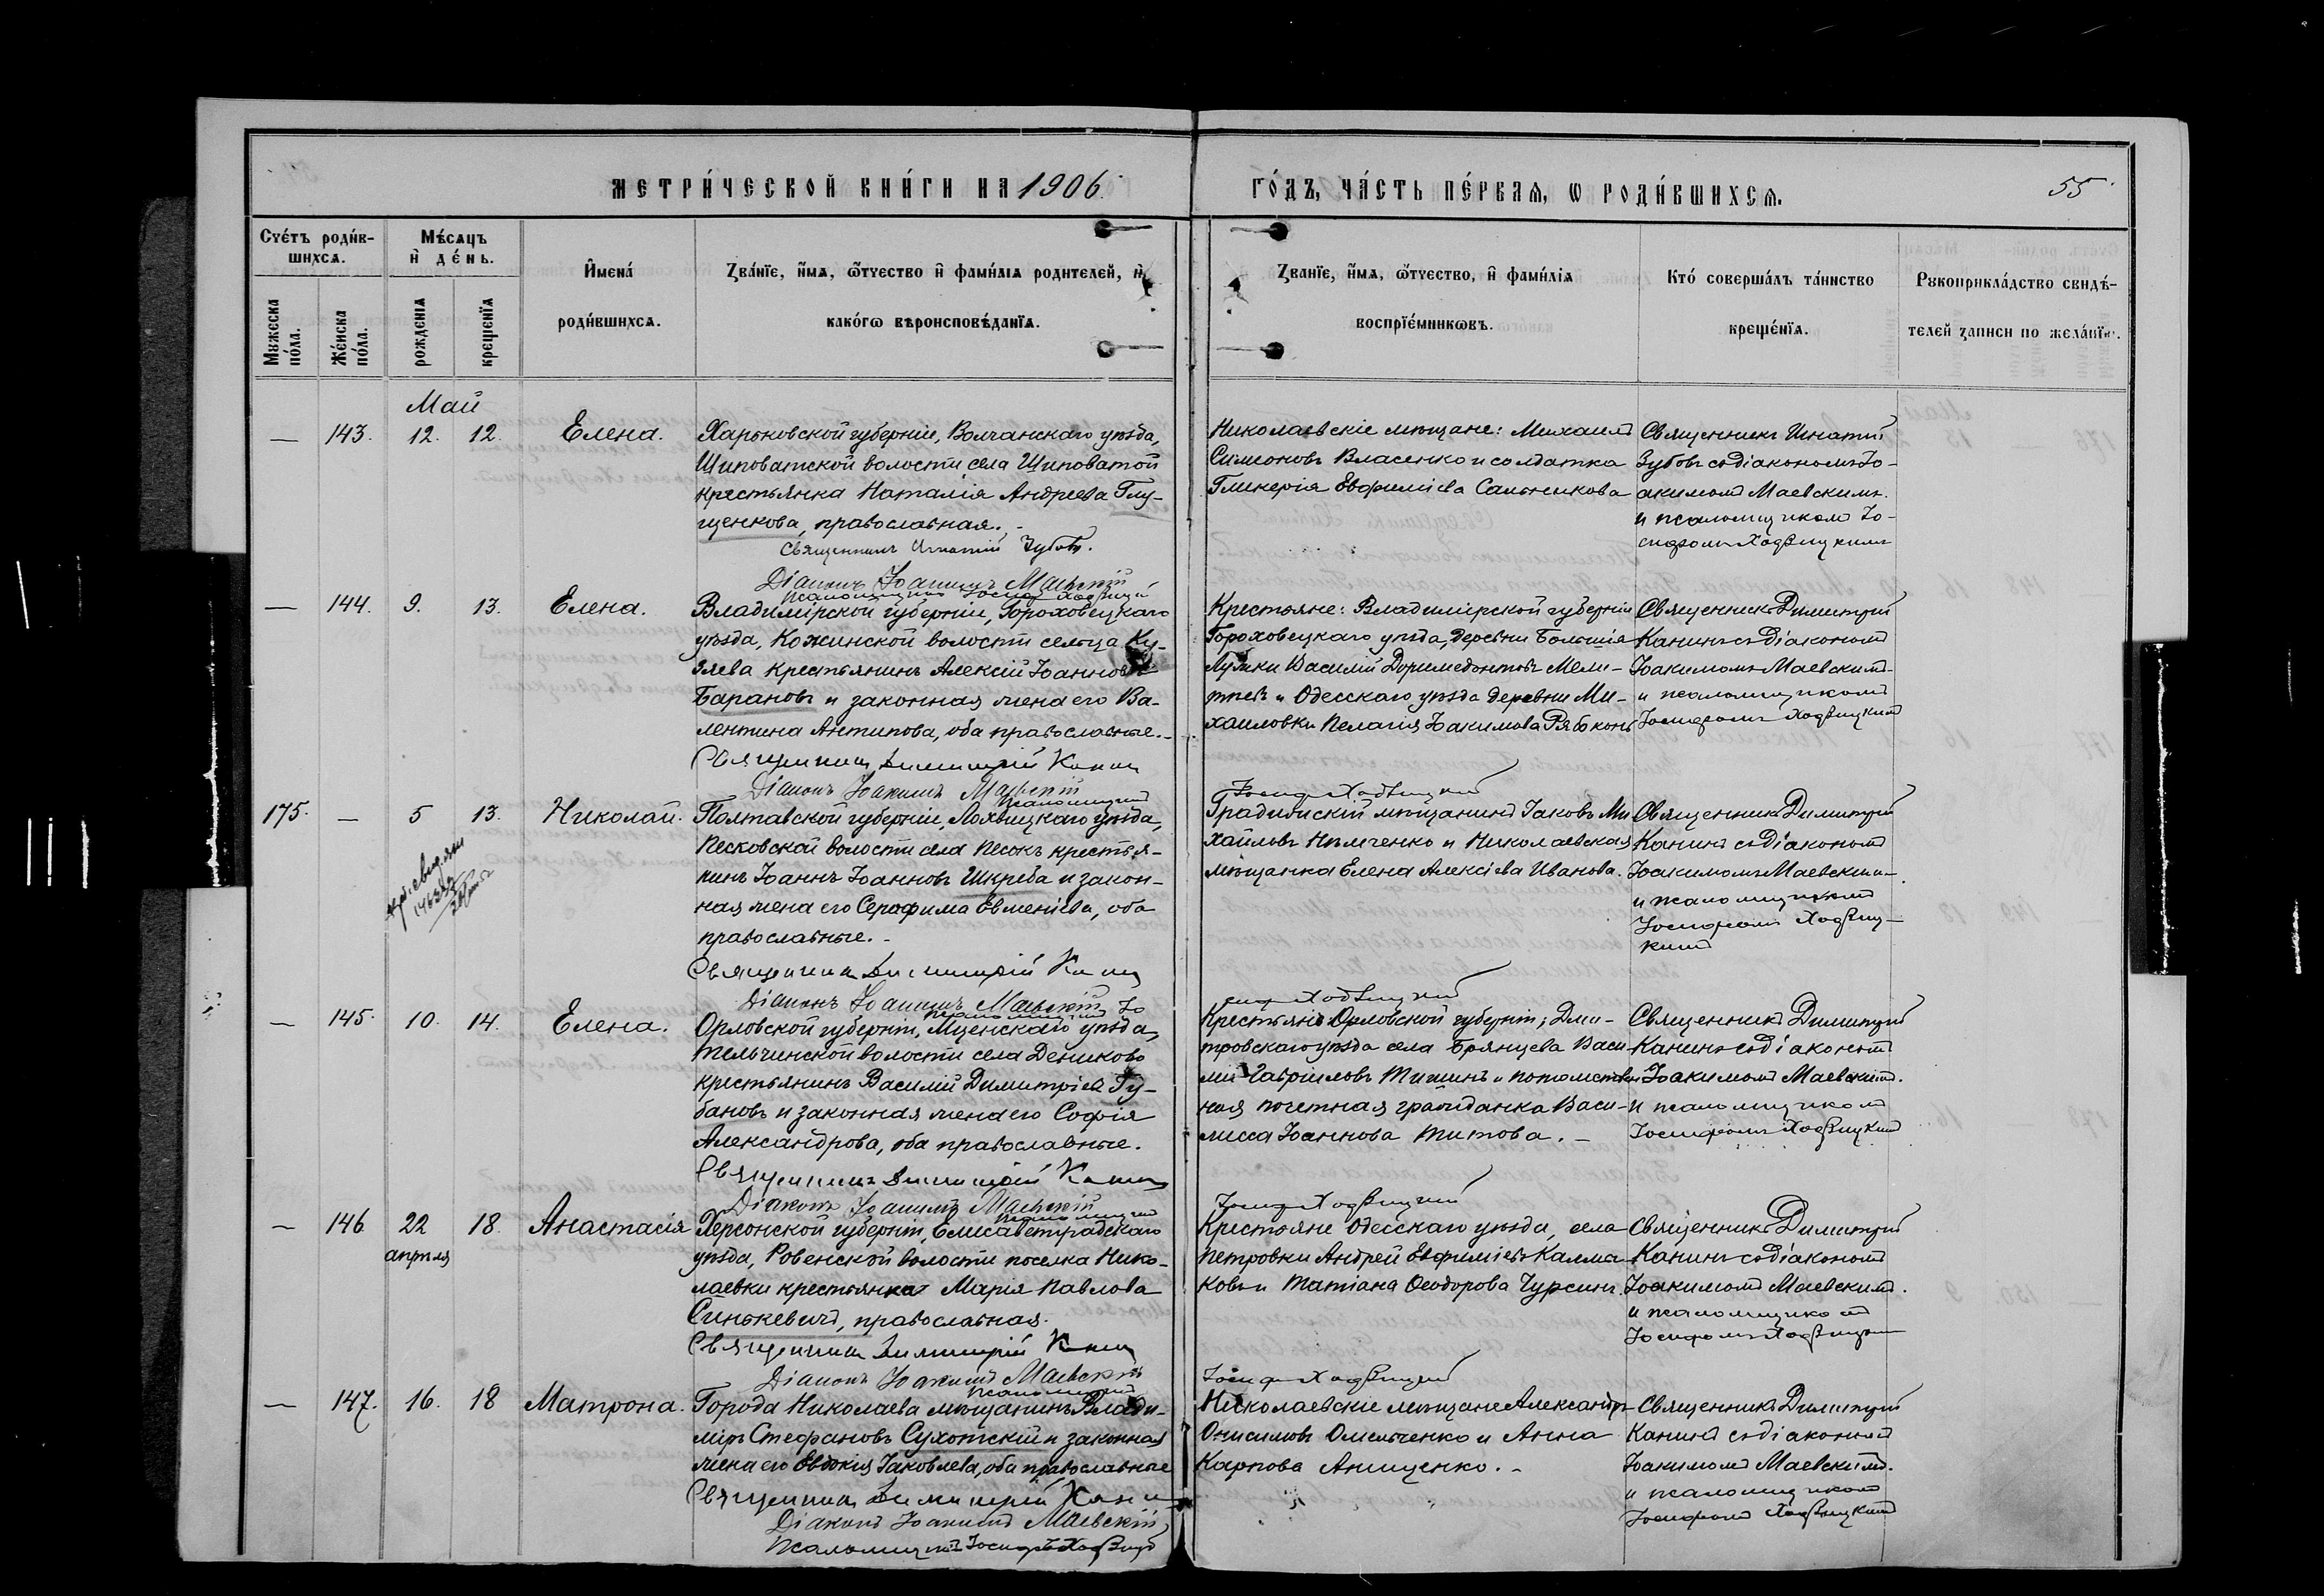 МЕТРИ́ЧЕСКОЙ КНИ́ГИ НА 1906.
ГО́ДЪ, ЧА́СТЬ ПЕ́РВАѦ, Ѡ РОДИ́ВШИХСѦ.
55
Сче́тъ роди́в-
шихсѧ.
Мꙋжеска по́ла.
Же́нска по́ла.
Мѣ́сѧцъ
и҆ де́нь.
рожденїѧ
крещенїѧ
И҆мена́
роди́вшихсѧ.
Зва́нїе, и҆́мѧ, ѻ҆́тчество и҆ фамилїѧ родителей, и҆
како́гѡ вѣроисповѣ́данїѧ.
Зва́нїе, и҆́мѧ, ѻ҆́тчество, и҆ фами́лїѧ
воспрїе́мникѡвъ.
Кто́ соверша́лъ та́инство
креще́нїѧ.
Рꙋкоприкла́дство свидѣ́-
телей записи по жела́нїю.
Май
— 143. 12. 12. Елена.
Харьковской губерніи, Волчанскаго уѣзда,
Шиповатской волости села Шиповатой
крестьянка Наталія Андреева Глу-
щенкова, православная. -
Священникъ Игнатій Зубовъ.
Діаконъ Іоакимъ Маевскій
Псаломщикъ Іосифъ Ходвицкій
Николаевскіе мѣщане: Михаилъ
Симеоновъ Власенко и солдатка
Гликерія Евфиміева Сальникова
Священникъ Игнатій
Зубовъ съ діакономъ Іо-
акимомъ Маевскимъ
и псаломщикомъ Іо-
сифомъ Ходвицкимъ
— 144. 9. 13. Елена.
Владимірской губерніи, Гороховецкаго
уѣзда, Кожинской волости сельца Ку-
зяева крестьянинъ Алексій Іоанновъ
Барановъ и законная жена его Ва-
лентина Антипова, оба православные. -
Священникъ Димитрій Канинъ
Діаконъ Іоакимъ Маевскій
Псаломщикъ
Іосифъ Ходвицкій
Крестьяне: Владимірской губерніи
Гороховецкаго уѣзда, деревни Большія
Лужки Василій Доримедонтовъ Мели-
тѣевъ и Одесскаго уѣзда деревни Ми-
хаиловки Пелагія Іоакимова Рябоконь
Священникъ Димитрій
Канинъ съ діакономъ
Іоакимомъ Маевскимъ
и псаломщикомъ
Іосифомъ Ходвицкимъ
175. — 5 13. Николай.
Полтавской губерніи, Лохвицкаго уѣзда,
Песковской волости села Песокъ крестья-
нинъ Іоаннъ Іоанновъ Шкреба и закон-
ная жена его Серафима Евменіева, оба
православные. -
Священникъ Димитрій Канинъ
Діаконъ Іоакимъ Маевскій
Псаломщикъ Іо
сифъ Ходвицкій
Градижскій мѣщанинъ Іаковъ Ми
хайловъ Нѣмченко и Николаевская
мѣщанка Елена Алексіева Иванова.
Священникъ Димитрій
Канинъ съ діакономъ
Іоакимомъ Маевскимъ
и псаломщикомъ
Іосифомъ Ходвиц-
кимъ
— 145. 10. 14. Елена.
Орловской губерніи, Мценскаго уѣзда,
Тельчинской волости села Дениково
крестьянинъ Василій Димитріевъ Гу-
бановъ и законная жена его Софія
Александрова, оба православные.
Священникъ Димитрій Канинъ
Діаконъ Іоакимъ Маевскій
Псаломщикъ
Іосифъ Ходвицкій
Крестьяне Орловской губерніи; Дми-
тровскаго уѣзда села Брянцева Васи-
лій Гавріиловъ Тишинъ и потомствен-
ная почетная гражданка Васи-
лисса Іоаннова Титова. -
Священникъ Димитрій
Канинъ съ діакономъ
Іоакимомъ Маевскимъ.
и псаломщикомъ
Іосифомъ Ходвицкимъ
— 146 22 апрѣля 18. Анастасія
Херсонской губерніи, Елисаветградскаго
уѣзда, Ровенской волости поселка Нико-
лаевки крестьянка Марія Павлова
Синькевичъ, православная.
Священникъ Димитрій Канинъ
Діаконъ Іоакимъ Маевскій
Псаломщикъ
Іосифъ Ходвицкій
Крестьяне Одесскаго уѣзда, села
Петровки Андрей Евфиміевъ Калма-
ковъ и Татіана Ѳеодорова Чурсинъ.
Священникъ Димитрій
Канинъ съ діакономъ
Іоакимомъ Маевскимъ.
и псаломщикомъ
Іосифомъ Ходвицкимъ
— 147. 16. 18 Матрона.
Города Николаева мѣщанинъ Влади-
міръ Стефановъ Сухотскій и законная
жена его Евдокія Іаковлева, оба православные
Священникъ Димитрій Канинъ
Діаконъ Іоакимъ Маевскій,
Псаломщикъ Іосифъ Ходвицкій
Николаевскіе мѣщане Александръ
Онисимовъ Омельченко и Анна
Карпова Анищенко. -
Священникъ Димитрій
Канинъ съ діакономъ
Іоакимомъ Маевскимъ.
и псаломщикомъ
Іосифомъ Ходвицкимъ